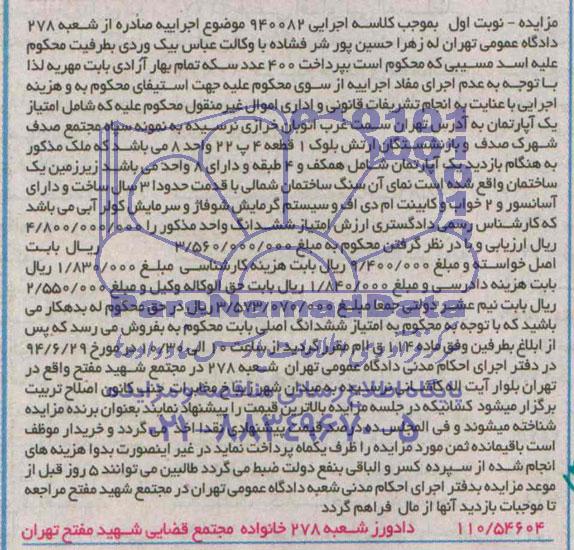 مزایده - نوبت اول بموجب کلاسه اجرایی ۹۴۰۰۸۲ موضوع اجراییه صادره از شعبه ۲۷۸
دادگاه عمومی تهران له زهرا حسین پور شر فشاده با وکالت عباس بیک وردی بطرفیت محکوم
علیه اسد مسیبی که محکوم است بپرداخت ۴۰۰ عدد سکه تمام بهار آزادی بابت مهریه لذا
با توجه به عدم اجرای مفاد اجراییه از سوی محکوم علیه جهت استیفای محکوم به و هزینه
اجرایی با عنایت به انجام تشریفات قانونی و اداری اموال غیر منقول محکوم علیه که شامل امتیاز
یک آپارتمان به آدرس تهران سمت غرب اتوبان خرازی نرسیده به نمونه سپاه مجتمع صدف
شهرک صدف و بازنشستگان ارتش بلوک ۱ قطعه ۴ پ ۲۲ واحد ۸ می باشد که ملک مذکور
به هنگام بازدید یک آپارتمان شامل همکف و ۴ طبقه و دارای ۸ واحد می باشد زیرزمین یک
ساختمان واقع شده است نمای آن سنگ ساختمان شمالی با قدمت حدودا ۳ سال ساخت و دارای
آسانسور و ۲ خواب و کابینت ام دی اف و سیستم گرمایش شوفاژ و سرمایش کولر آبی می باشد
که کارشناس رسمی دادگستری ارزش امتیاز ششدانگ واحد مذکور را ۴/۸۰۰/۰۰۰/۰۰۰
ریال ارزیابی و با در نظر گرفتن محکوم به مبلغ ۳/۵۶۰/۰۰۰/۰۰۰ ریال بابت
اصل خواسته و مبلغ ۹/۴۰۰/۰۰۰ ریال بابت هزینه کارشناسی مبلغ ۱/۸۳۰/۰۰۰ ریال
بابت هزینه دادرسی و مبلغ ۱/۸۴۰/۰۰۰ ریال بابت حق الوکاله وکیل و مبلغ ۲/۵۵۰/۰۰۰
ریال بابت نیم عشر دولتی جمعا مبلغ ۳/۵۷۳/۰۷۰/۰۰۰ ریال در حق محکوم له بدهکار می
باشید که با توجه به محکوم به امتیاز ششدانگ اصلی بابت محکوم به بفروش می رسد که پس
از ابلاغ بطرفین وفق ماده ۱۴ ق ا م مقرر گردید از ساعت ۱۰ الی ۱۰/۳۰ در مورخ ۹۴/۶/۲۹
در دفتر اجرای احکام مدنی دادگاه عمومی تهران شعبه ۲۷۸ در مجتمع شهید مفتح واقع در
تهران بلوار آیت اله کاشانی نرسیده به میدان شهر زیبا مخابرات جنب کانون اصلاح تربیت
برگزار میشود کسانیکه در جلسه مزایده بالاترین قیمت را پیشنهاد نمایند بعنوان برنده مزایده
شناخته میشوند و فی المجلس ده درصد قیمت پیشنهادی نقدا اخذ می گردد و خریدار موظف
است باقیمانده ثمن مورد مزایده را ظرف یکماه پرداخت نماید در غیر اینصورت بدوا هزینه های
انجام شده از سپرده کسر و الباقی بنفع دولت ضبط می گردد طالبین می توانند ۵ روز قبل از
موعد مزایده بدفتر اجرای احکام مدنی شعبه دادگاه عمومی تهران در مجتمع شهید مفتح مراجعه
تا موجبات بازدید آنها از مال فراهم گردد
۱۱۰/۵۴۶۰۴ دادورز شعبه ۲۷۸ خانواده مجتمع قضایی شهید مفتح تهران
ParsNamadData
پایگاه اطلاع رسانی مناقصه و مزایده
۰۲۱-۸۸۳۴۹۶۷۰-۵